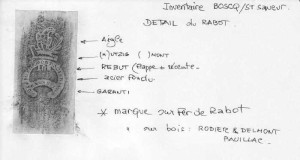 Inventaire BOSCQ/ST SAUVEUR
DETAIL du RABOT.
Aigle
(M)UTZIG ( )MONT
REBUT (frappe + récente
acier fondu
GARANTI
* marque sur Fer de Rabot
" sur bois: RODIER & DELMONT
PAUILLAC.